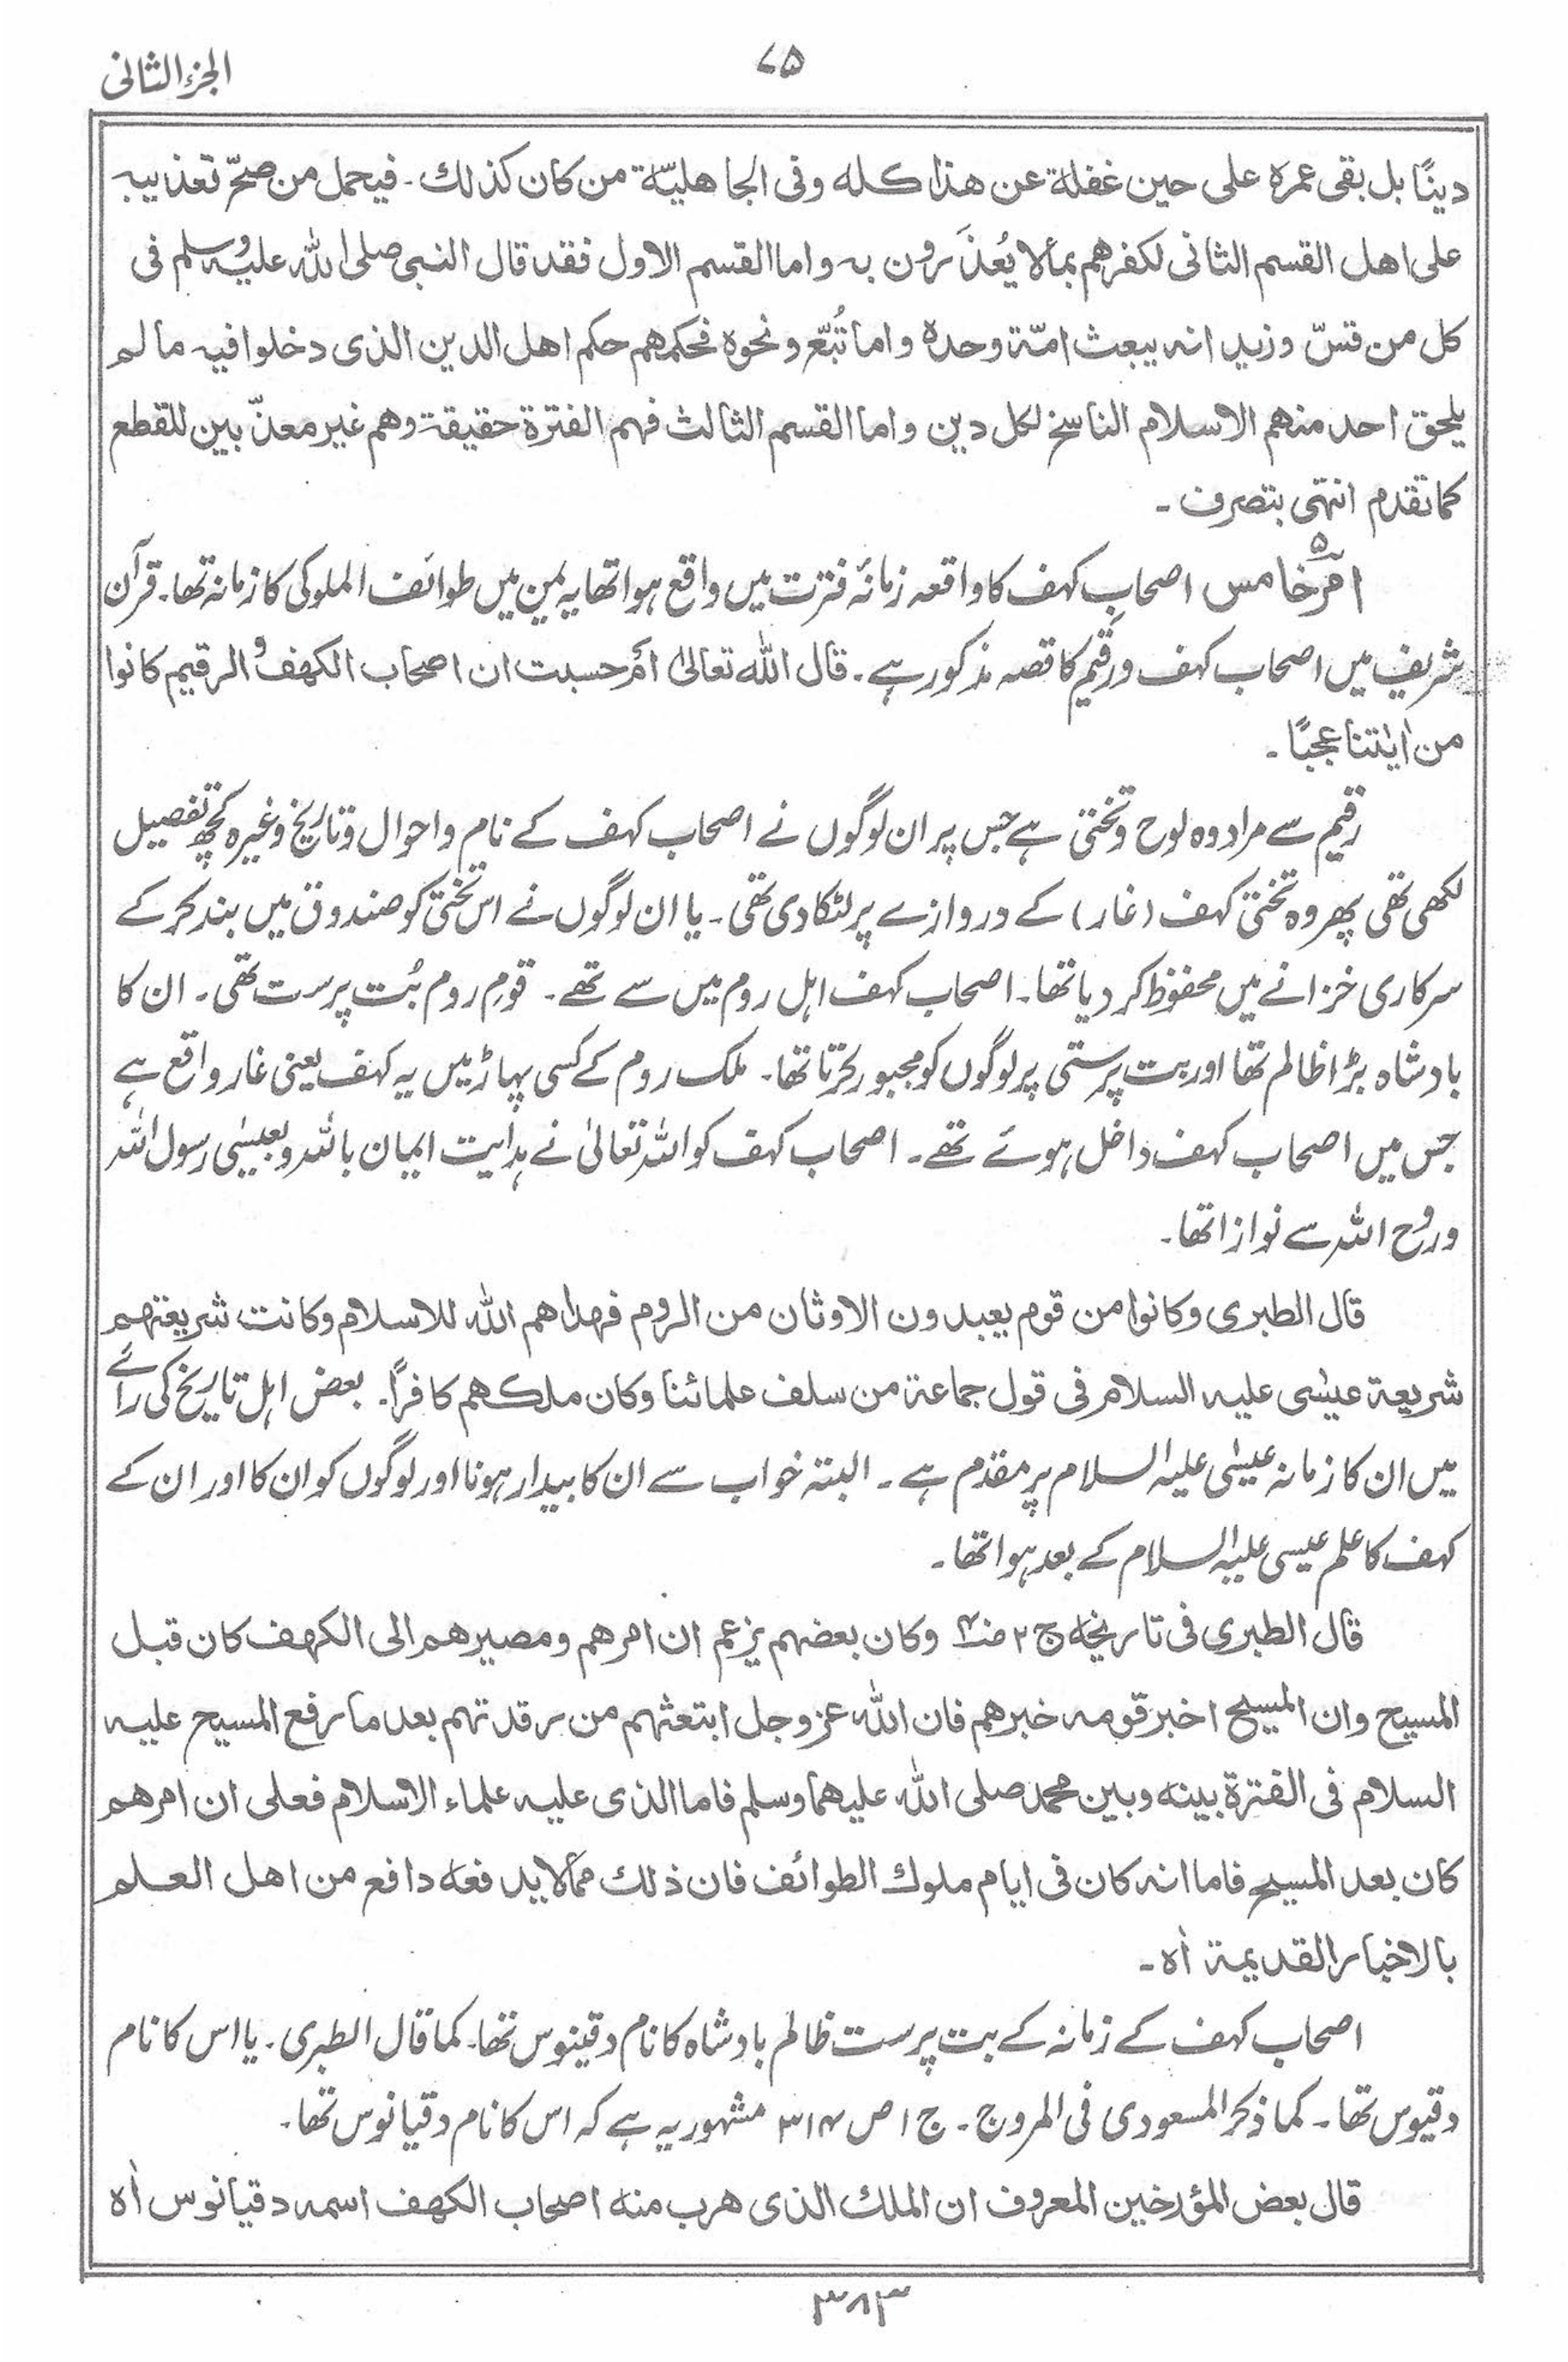 الجزء الثانی
۷۵
دینًا بل بقی عمرہ علی حین غفلۃ عن ھذا کلہ وفی الجاھلیّۃ من کان کذلك ۔ فیحمل من صحّ تعذیبہ
علی اھل القسم الثانی لکفرھم بمالا یُعذَرون بہ واما القسم الاول فقد قال النبی صلی اللہ علیہ وسلم فی
کل من قسّ وزید انہ یبعث امّۃ وحدہ واما تُبّع ونحوہ فحکمھم حکم اھل الدین الذی دخلوا فیہ مالم
یلحق احد منھم الاسلام الناسخ لکل دین واما القسم الثالث فھم الفترۃ حقیقۃ وھم غیر معذّبین للقطع
کما تقدم انتھی بتصرف ۔
امرِ خامس ۵ اصحابِ کہف کا واقعہ زمانۂ فترت میں واقع ہوا تھا یہ یمن میں طوائف الملوکی کا زمانہ تھا۔ قرآن
شریف میں اصحاب کہف ورقیم کا قصہ مذکور ہے۔ قال اللہ تعالیٰ اَم حسبت ان اصحاب الکھف والرقیم کانوا
من اٰیٰتنا عجبًا ۔
رقیم سے مراد وہ لوح وتختی ہے جس پر ان لوگوں نے اصحاب کہف کے نام واحوال وتاریخ وغیرہ کچھ تفصیل
لکھی تھی پھر وہ تختی کہف (غار) کے دروازے پر لٹکا دی تھی۔ یا ان لوگوں نے اس تختی کو صندوق میں بند کر کے
سرکاری خزانے میں محفوظ کر دیا تھا۔ اصحاب کہف اہل روم میں سے تھے۔ قومِ روم بُت پرست تھی۔ ان کا
بادشاہ بڑا ظالم تھا اور بت پرستی پر لوگوں کو مجبور کرتا تھا۔ ملک روم کے کسی پہاڑ میں یہ کہف یعنی غار واقع ہے
جس میں اصحاب کہف داخل ہوئے تھے۔ اصحاب کہف کو اللہ تعالیٰ نے ہدایت ایمان باللہ وبعیسٰی رسول اللہ
وروح اللہ سے نوازا تھا۔
قال الطبری وکانوا من قوم یعبدون الاوثان من الروم فھداھم اللہ للاسلام وکانت شریعتھم
شریعۃ عیسٰی علیہ السلام فی قول جماعۃ من سلف علمائنا وکان ملکھم کافرًا۔ بعض اہل تاریخ کی رائے
میں ان کا زمانہ عیسٰی علیہ السلام پر مقدم ہے ۔ البتہ خواب سے ان کا بیدار ہونا اور لوگوں کو ان کا اور ان کے
کہف کا علم عیسی علیہ السلام کے بعد ہوا تھا ۔
قال الطبری فی تاریخہ ج ۲ وکان بعضھم یزعم ان امرھم ومصیرھم الی الکھف کان قبل
المسیح وان المسیح اخبر قومہ خبرھم فان اللہ عز وجل ابتعثھم من رقدتھم بعد ما رفع المسیح علیہ
السلام فی الفترۃ بینہ وبین محمد صلی اللہ علیہما وسلم فاما الذی علیہ علماء الاسلام فعلی ان امرھم
کان بعد المسیح فاما انہ کان فی ایام ملوك الطوائف فان ذلك ممالا یدفعہ دافع من اھل العلم
بالاخبار القدیمۃ اٰہ ۔
اصحاب کہف کے زمانہ کے بت پرست ظالم بادشاہ کا نام دقینوس تھا۔ کما قال الطبری۔ یا اس کا نام
دقیوس تھا ۔ کما ذکر المسعودی فی المروج ۔ ج ۱ ص ۳۱۴ مشہور یہ ہے کہ اس کا نام دقیانوس تھا۔
قال بعض المؤرخین المعروف ان الملك الذی ھرب منہ اصحاب الکھف اسمہ دقیانوس اٰہ
۳۸۳